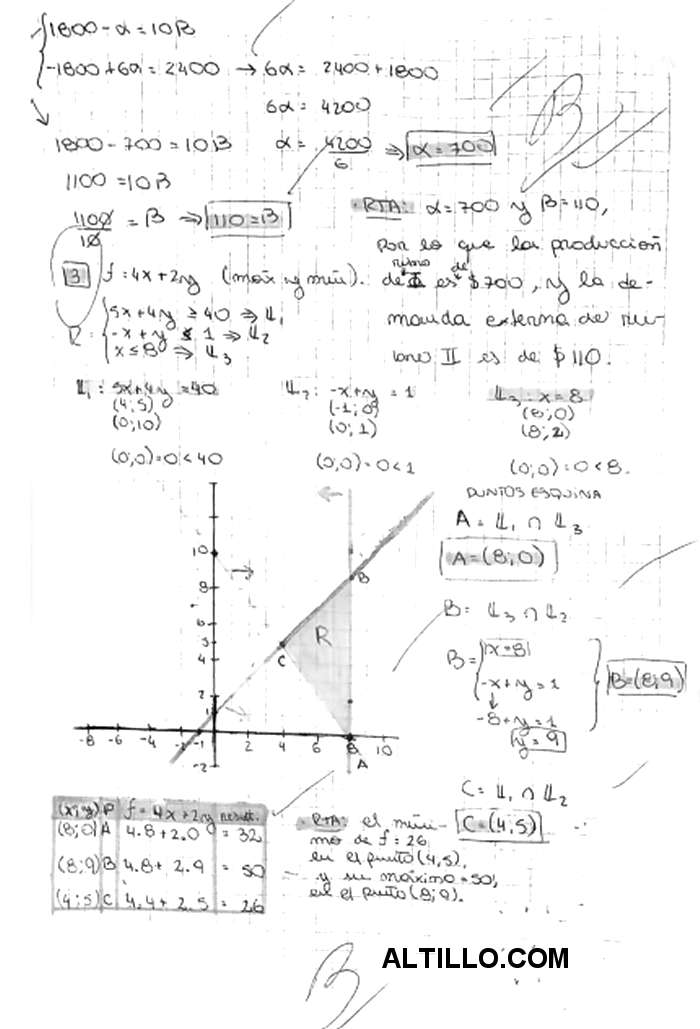 1800 - α = 10B
-1800 + 6α = 2400 → 6α = 2400 + 1800
6α = 4200
1800 - 700 = 10B α = 4200/6 ⇒ α = 700
1100 = 10B
1100/10 = B ⇒ 110 = B
RTA: α = 700 y B = 110,
por lo que la producción
de rubro I es de $700, y la de-
manda externa de ru-
bro II es de $110.
3 f = 4x + 2y (máx y mín).
R: 5x + 4y ≥ 40 ⇒ L1
-x + y ≤ 1 ⇒ L2
x ≤ 8 ⇒ L3
L1: 5x + 4y = 40 L2: -x + y = 1 L3: x = 8
(4; 5) (-1; 0) (8; 0)
(0; 10) (0; 1) (8; 2)
(0; 0) = 0 < 40 (0; 0) = 0 < 1 (0; 0) = 0 < 8.
PUNTOS ESQUINA
A = L1 ∩ L3
A = (8; 0)
B = L3 ∩ L2
B = x = 8
-x + y = 1
-8 + y = 1
y = 9
B = (8; 9)
C = L1 ∩ L2
C = (4; 5)
10
8
6
5
4
2
1
-2
-8 -6 -4 -2 -1 4 8 10
R
A
B
C
(x; y) P f = 4x + 2y result.
(8; 0) A 4.8 + 2.0 = 32
(8; 9) B 4.8 + 2.9 = 50
(4; 5) C 4.4 + 2.5 = 26
RTA: el míni-
mo de f = 26
en el punto (4, 5),
y su máximo = 50,
en el punto (8; 9).
B
B
ALTILLO.COM